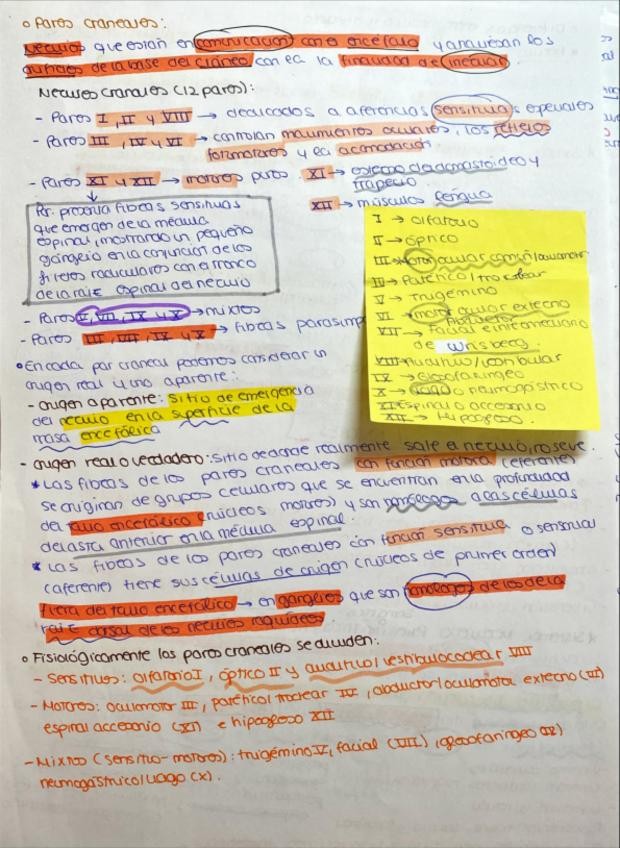 o Pares craneales:
Nervios que están en comunicación con el encéfalo y atraviesan los
orificios de la base del cráneo con el la finalidad de inervar.
Nervios craneales (12 pares):
- Pares I, II y VIII → dedicados a aferencias sensitivas especiales
- Pares III, IV y VI → controlan movimientos oculares, los reflejos
fotomotores y la acomodación
- Pares XI y XII → motores puros. XI → esternocleidomastoideo y
trapecio
XII → músculos lengua
Par. presenta fibras sensitivas
que emergen de la médula
espinal, mostrando un pequeño
ganglio en la conjunción de los
filetes radiculares con el tronco
de la raíz espinal del nervio
I → olfatorio
II → óptico
III → Motor ocular común/oculomotor
IV → Patético/troclear
V → Trigémino
VI → motor ocular externo
VII → facial e intermediario
de Wrisberg.
VIII → Auditivo/vestibular
IX → Glosofaríngeo
X → vago o neumogástrico
XI Espinal o accesorio
XII → Hipogloso.
- Pares V, VII, IX y X → mixtos
- Pares III, VII, IX y X → fibras parasimp
o En cada par craneal podemos considerar un
origen real y uno aparente:
- origen aparente: sitio de emergencia
del nervio en la superficie de la
masa encefálica
- origen real o verdadero: sitio de donde realmente sale el nervio, no se ve.
* Las fibras de los pares craneales con función motora (eferente)
se originan de grupos celulares que se encuentran en la profundidad
del tallo encefálico (núcleos motores) y son homólogos a las células
del asta anterior en la médula espinal.
* Las fibras de los pares craneales con función sensitiva o sensorial
(aferente) tiene sus células de origen (núcleos de primer orden)
fuera del tallo encefálico → en ganglios que son homólogos de los de la
raíz dorsal de los nervios raquídeos
o Fisiológicamente los pares craneales se dividen:
- Sensitivos: olfatorio I, óptico II y auditivo/vestibulococlear VIII
- Motores: oculomotor III, patético/troclear IV, abductor/oculomotor externo (VI)
espinal accesorio (XI) e hipogloso XII
- Mixtos (sensitivo-motores): trigémino V, facial (VII), glosofaríngeo (IX)
neumogástrico/vago (X).